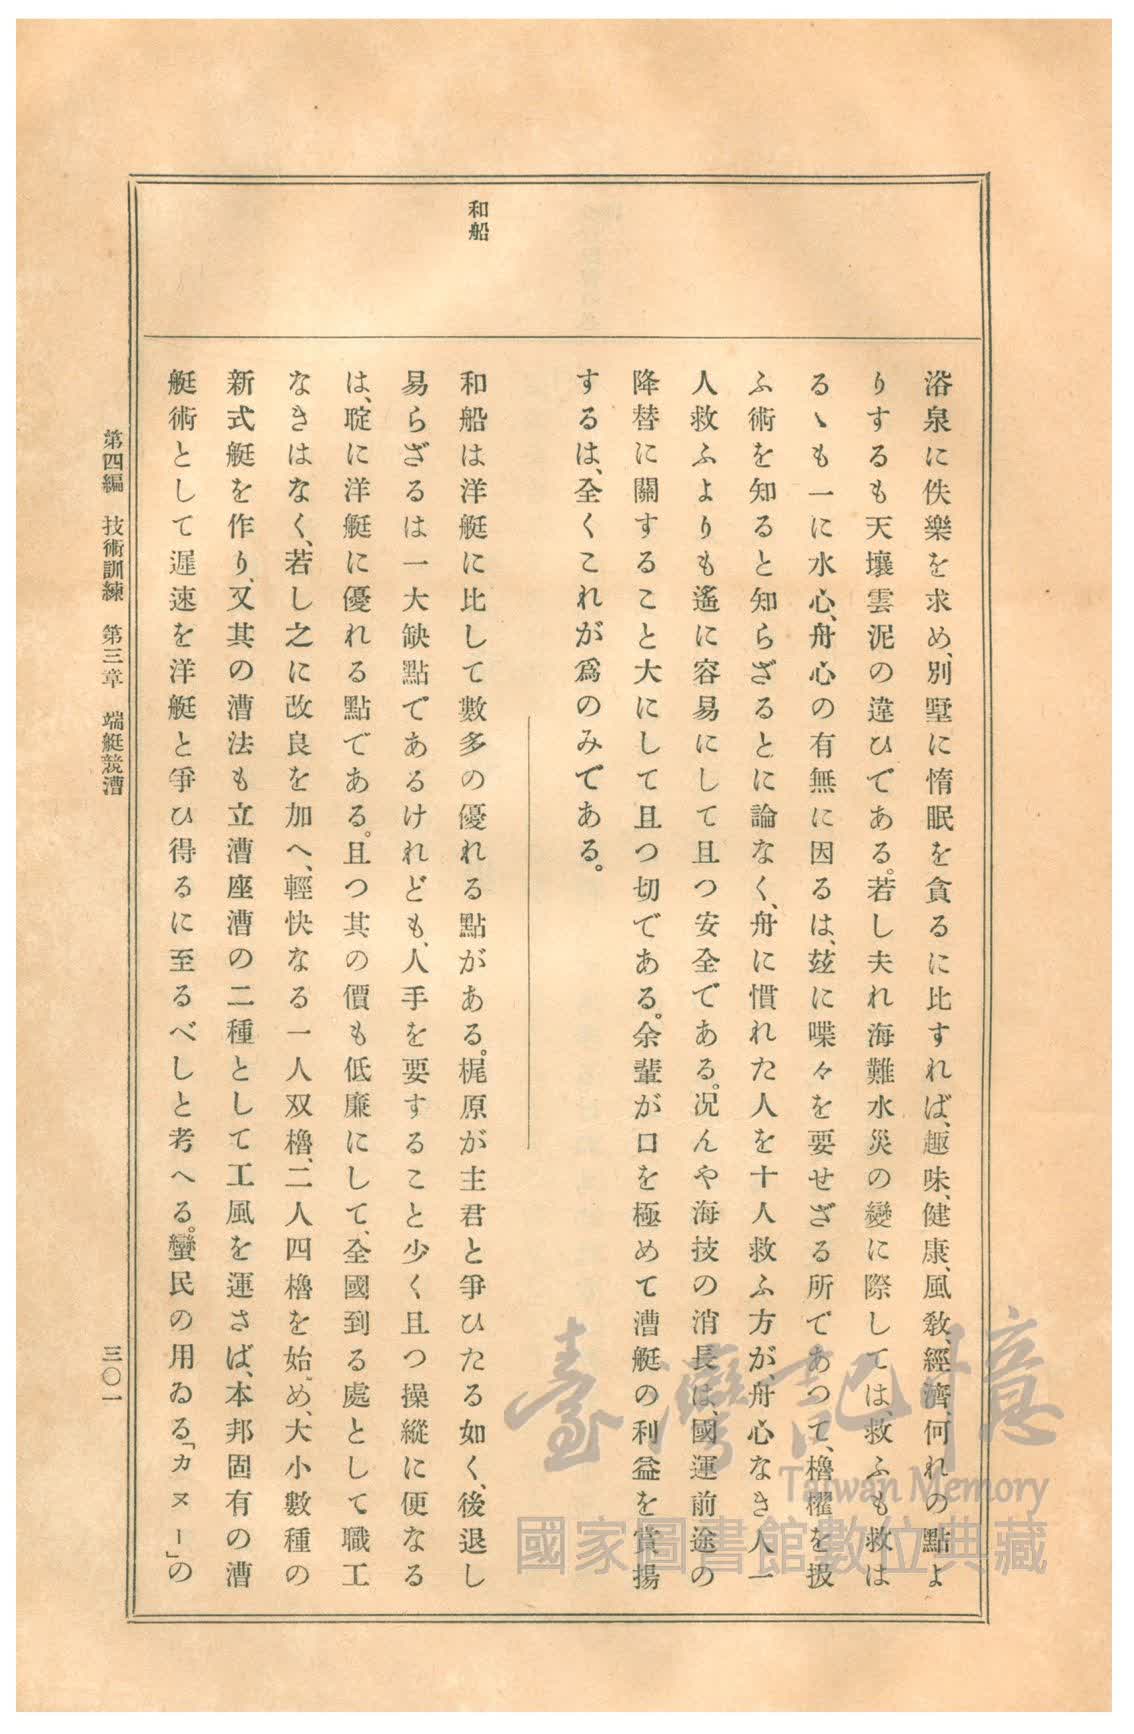 和船
浴泉に佚樂を求め、別墅に惰眠を貪るに比すれば、趣味、健康、風敎、經濟、何れの點よ
りするも天壤雲泥の違ひである。若し夫れ海難水災の變に際しては、救ふも救は
るゝも一に水心、舟心の有無に因るは、玆に喋々を要せざる所であつて、櫓櫂を扱
ふ術を知ると知らざるとに論なく、舟に慣れた人を十人救ふ方が、舟心なき人一
人救ふよりも遙に容易にして且つ安全である。况んや海技の消長は、國運前途の
降替に關すること大にして且つ切である。余輩が口を極めて漕艇の利益を賞揚
するは、全くこれが爲のみである。
和船は洋艇に比して數多の優れる點がある。梶原が主君と爭ひたる如く、後退し
易らざるは一大缺點であるけれども、人手を要すること少く且つ操縱に便なる
は、 に洋艇に優れる點である。且つ其の價も低廉にして、全國到る處として職工
なきはなく、若し之に改良を加へ、輕快なる一人双櫓、二人四櫓を始め、大小數種の
新式艇を作り、又其の漕法も立漕座漕の二種として工風を運さば、本邦固有の漕
艇術として遲速を洋艇と爭ひ得るに至るべしと考へる。蠻民の用ゐる「カヌー」の
第四編　技術訓練　第三章　端艇競漕
三〇一
臺灣記憶
Taiwan Memory
國家圖書館數位典藏